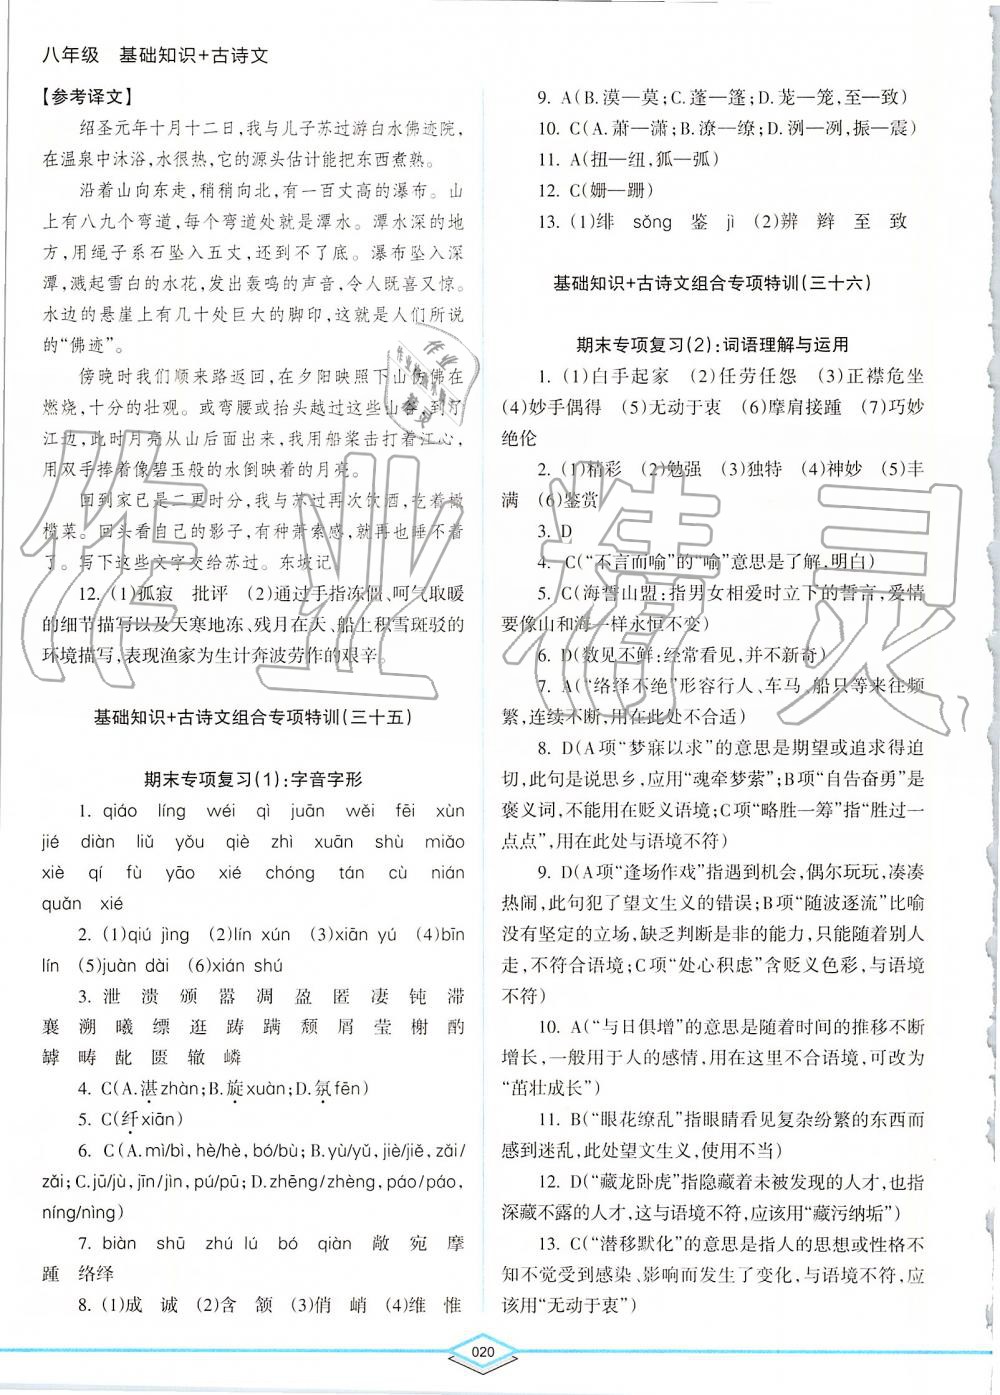 八年级 基础知识+古诗文
【参考译文】
绍圣元年十月十二日,我与儿子苏过游白水佛迹院,
在温泉中沐浴,水很热,它的源头估计能把东西煮熟。
沿着山向东走,稍稍向北,有一百丈高的瀑布。山
上有八九个弯道,每个弯道处就是潭水。潭水深的地
方,用绳子系石坠入五丈,还到不了底。瀑布坠入深
潭,溅起雪白的水花,发出轰鸣的声音,令人既喜又惊。
水边的悬崖上有几十处巨大的脚印,这就是人们所说
的“佛迹”。
傍晚时我们顺来路返回,在夕阳映照下山仿佛在
燃烧,十分的壮观。或弯腰或抬头越过这些山谷,到了
江边,此时月亮从山后面出来,我用船桨击打着江心,
用双手捧着像碧玉般的水倒映着的月亮。
回到家已是二更时分,我与苏过再次饮酒,吃着橄
榄菜。回头看自己的影子,有种萧索感,就再也睡不着
了。写下这些文字交给苏过。东坡记。
12. (1)孤寂 批评 (2)通过手指冻僵、呵气取暖
的细节描写以及天寒地冻、残月在天、船上积雪斑驳的
环境描写,表现渔家为生计奔波劳作的艰辛。
基础知识+古诗文组合专项特训(三十五)
期末专项复习(1):字音字形
1. qiáo líng wéi qì juān wěi fēi xùn
jié diàn liǔ yǒu qiè zhì xuān shù miǎo
xiè qí fù yāo xié chóng tán cù nián
quǎn xié
2. (1)qiú jìng (2)lín xún (3)xiān yú (4)bīn
lín (5)juàn dài (6)xián shú
3. 泄 溃 颁 嚣 凋 盈 匿 凄 钝 滞
襄 溯 曦 缥 逛 踌 蹒 颓 屑 莹 榭 酌
罅 畴 龀 匮 辙 嶙
4. C(A.湛zhàn;B.旋xuàn;D.氛fēn)
5. C(纤xiān)
6. C(A.mì/bì,hè/hè,bó/bù;B.yù/yǔ,jiè/jiě,zǎi/
zǎi;C.jū/jù,jīn/jìn,pú/pū;D.zhēng/zhèng,páo/páo,
níng/nìng)
7. biàn shū zhú lú bó qiàn 敞 宛 摩
踵 络绎
8. (1)成 诚 (2)含 颔 (3)俏 峭 (4)维 惟
9. A(B.漠—莫;C.蓬—篷;D.茏—笼,至—致)
10. C(A.萧—潇;B.潦—缭;D.洌—冽,振—震)
11. A(扭—纽,狐—弧)
12. C(姗—跚)
13. (1)绯 sǒng 鉴 jì (2)辨 辩 至 致
基础知识+古诗文组合专项特训(三十六)
期末专项复习(2):词语理解与运用
1. (1)白手起家 (2)任劳任怨 (3)正襟危坐
(4)妙手偶得 (5)无动于衷 (6)摩肩接踵 (7)巧妙
绝伦
2. (1)精彩 (2)勉强 (3)独特 (4)神妙 (5)丰
满 (6)鉴赏
3. D
4. C(“不言而喻”的“喻”意思是了解,明白)
5. C(海誓山盟:指男女相爱时立下的誓言,爱情
要像山和海一样永恒不变)
6. D(数见不鲜:经常看见,并不新奇)
7. A(“络绎不绝”形容行人、车马、船只等来往频
繁,连续不断,用在此处不合适)
8. D(A项“梦寐以求”的意思是期望或追求得迫
切,此句是说思乡,应用“魂牵梦萦”;B项“自告奋勇”是
褒义词,不能用在贬义语境;C项“略胜一筹”指“胜过一
点点”,用在此处与语境不符)
9. D(A项“逢场作戏”指遇到机会,偶尔玩玩,凑凑
热闹,此句犯了望文生义的错误;B项“随波逐流”比喻
没有坚定的立场,缺乏判断是非的能力,只能随着别人
走,不符合语境;C项“处心积虑”含贬义色彩,与语境
不符)
10. A(“与日俱增”的意思是随着时间的推移不断
增长,一般用于人的感情,用在这里不合语境,可改为
“茁壮成长”)
11. B(“眼花缭乱”指眼睛看见复杂纷繁的东西而
感到迷乱,此处望文生义,使用不当)
12. D(“藏龙卧虎”指隐藏着未被发现的人才,也指
深藏不露的人才,这与语境不符,应该用“藏污纳垢”)
13. C(“潜移默化”的意思是指人的思想或性格不
知不觉受到感染、影响而发生了变化,与语境不符,应
该用“无动于衷”)
020
作业精灵